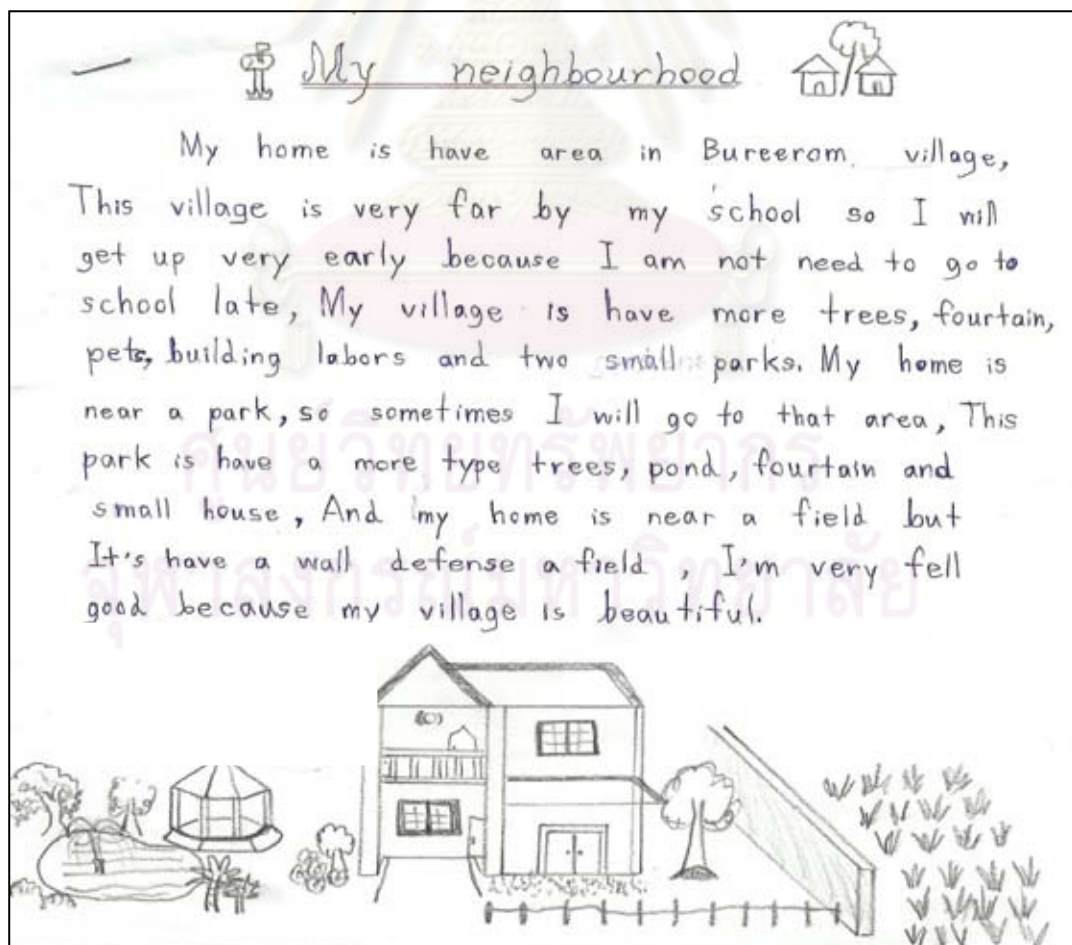 My neighbourhood
My home is have area in Bureerom village,
This village is very far by my school so I will
get up very early because I am not need to go to
school late, My village is have more trees, fourtain,
pets, building labors and two small parks. My home is
near a park, so sometimes I will go to that area, This
park is have a more type trees, pond, fourtain and
small house, And my home is near a field but
It's have a wall defense a field, I'm very fell
good because my village is beautiful.
ศูนย์วิทยทรัพยากร
จุฬาลงกรณ์มหาวิทยาลัย